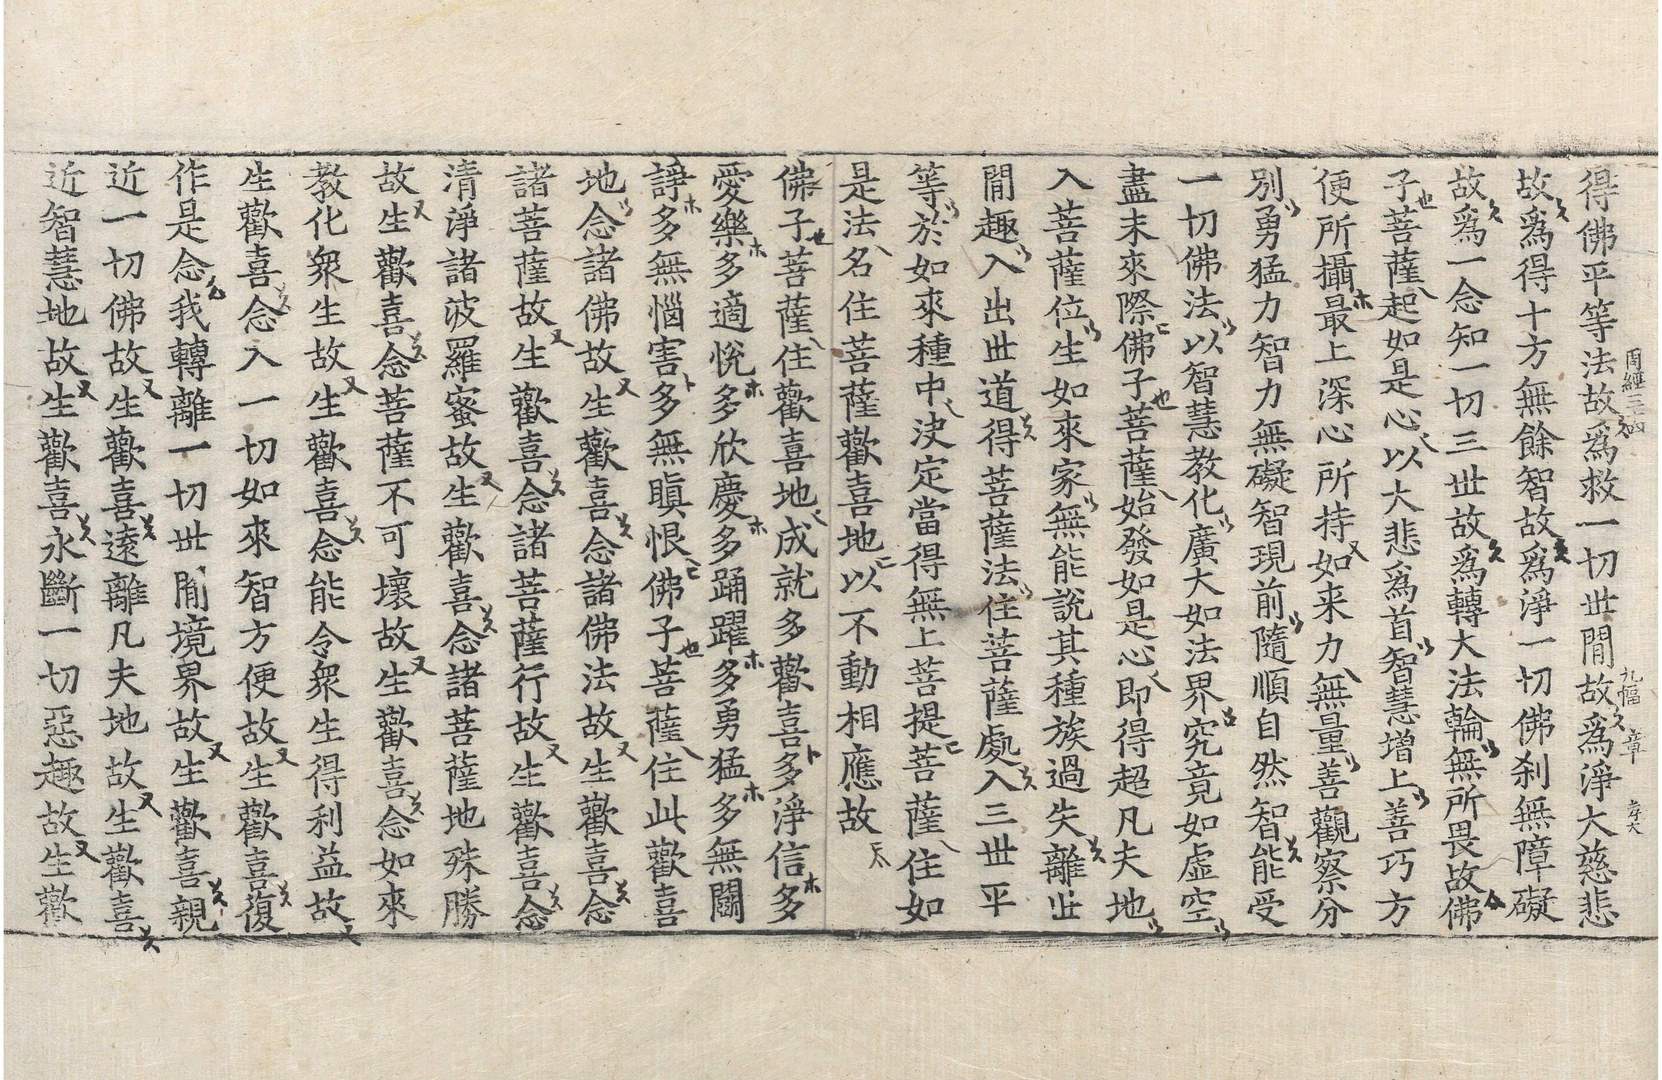 得佛平等法故爲救一切世間故爲淨大慈悲
故爲得十方無餘智故爲淨一切佛刹無障礙
故爲一念知一切三世故爲轉大法輪無所畏故佛
子菩薩起如是心以大悲爲首智慧增上善巧方
便所攝最上深心所持如来力無量善觀察分
別勇猛力智力無礙智現前隨順自然智能受
一切佛法以智慧教化廣大如法界究竟如虚空
盡未來際佛子菩薩始發如是心即得超凡夫地
入菩薩位生如來家無能說其種族過失離世
間趣入出世道得菩薩法住菩薩處入三世平
等於如來種中决定當得無上菩提菩薩住如
是法名住菩薩歡喜地以不動相應故
佛子菩薩住歡喜地成就多歡喜多淨信多
愛樂多適悅多欣慶多踊躍多勇猛多無鬪
諍多無惱害多無瞋恨佛子菩薩住此歡喜
地念諸佛故生歡喜念諸佛法故生歡喜念
諸菩薩故生歡喜念諸菩薩行故生歡喜念
清淨諸波羅蜜故生歡喜念諸菩薩地殊勝
故生歡喜念菩薩不可壞故生歡喜念如來
教化衆生故生歡喜念能令衆生得利益故
生歡喜念入一切如來智方便故生歡喜復
作是念我轉離一切世間境界故生歡喜親
近一切佛故生歡喜遠離凡夫地故生歡喜
近智慧地故生歡喜永斷一切惡趣故生歡